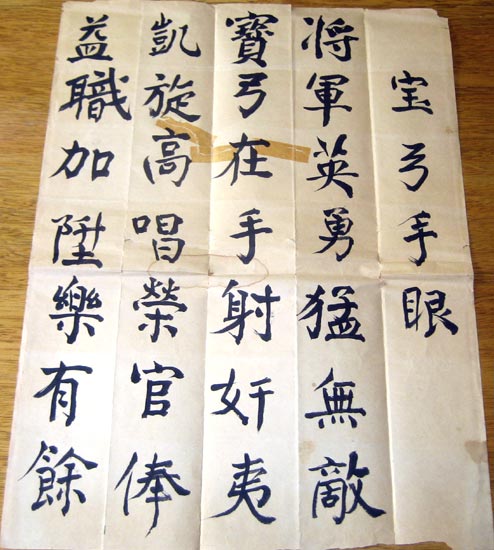 宝弓手眼
将軍英勇猛無敵
寳弓在手射奸夷
凱旋高唱榮官俸
益職加陞樂有餘